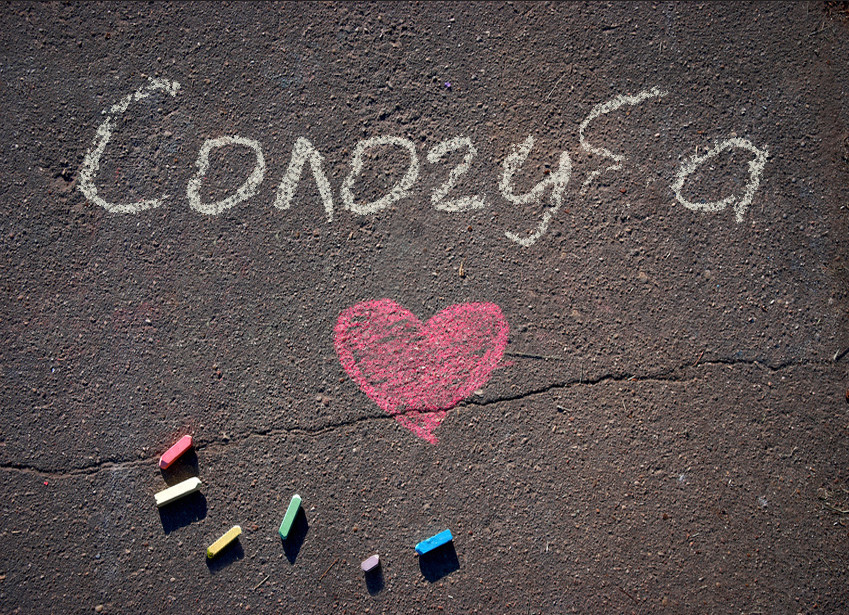 Сологуб а